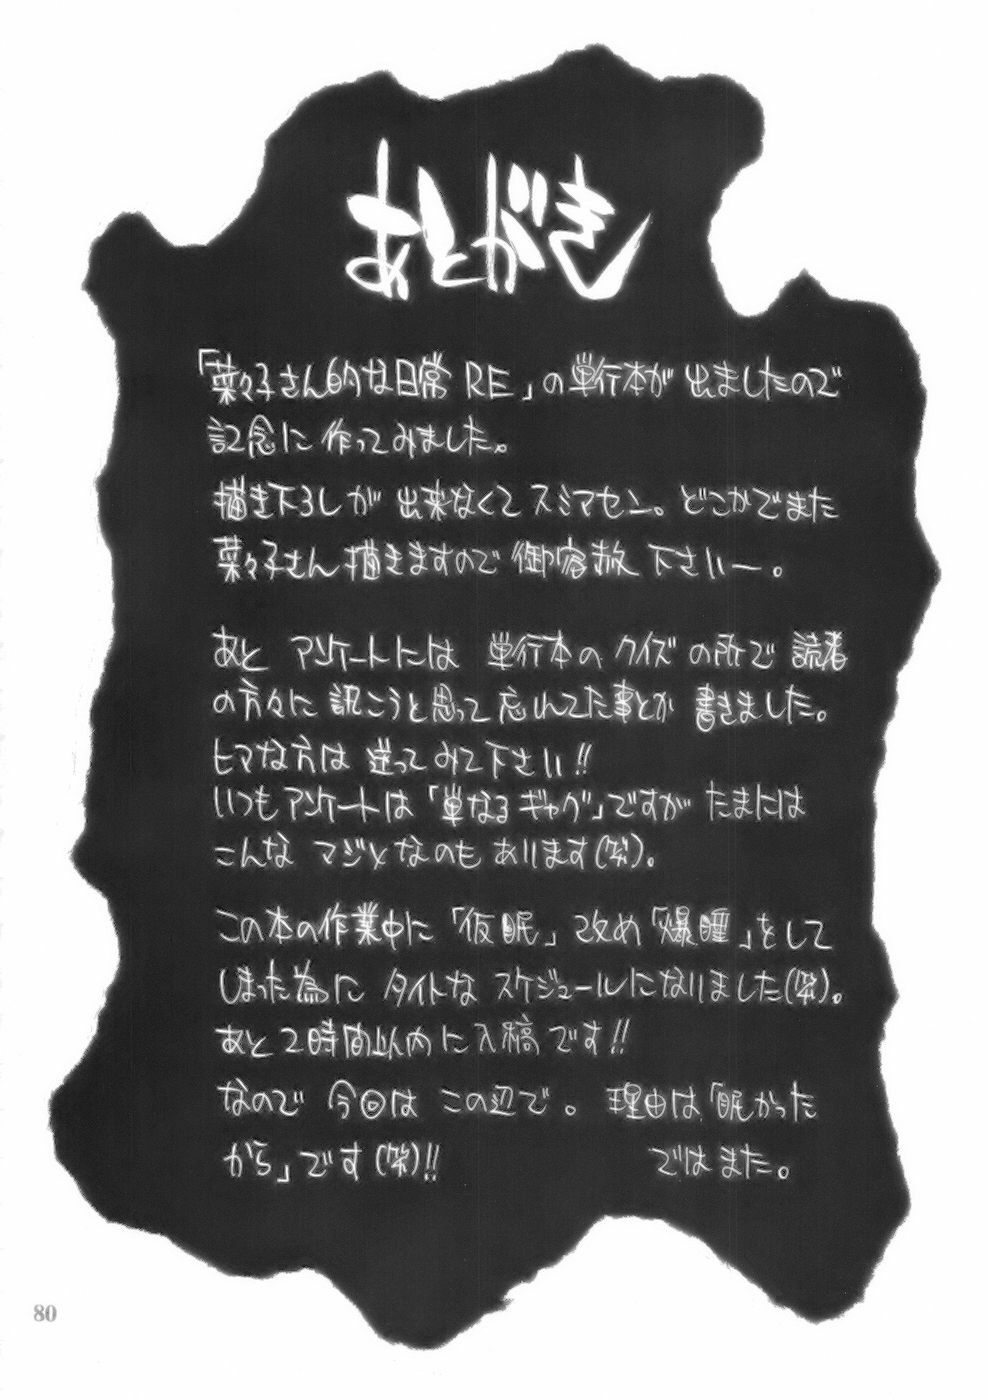 あとがき
「菜々子さん的な日常 RE」の単行本が 出ましたので
記念に 作ってみました。
描き下ろしが 出来なくて スミマセン。どこかでまた
菜々子さん描きますので 御容赦 下さいー。
あと アンケートには 単行本のクイズの所で 読者
の方々に 訊こうと思って 忘れてた事とか 書きました。
ヒマな方は 送ってみて下さい!!
いつもアンケートは「単なるギャグ」ですが たまには
こんな マジメなのも あります(笑)。
この本の作業中に「仮眠」改め「爆睡」をして
しまった為に タイトな スケジュールになりました(笑)。
あと2時間以内に入稿です!!
なので 今回は この辺で。 理由は「眠かった
から」です(笑)!! ではまた。
80